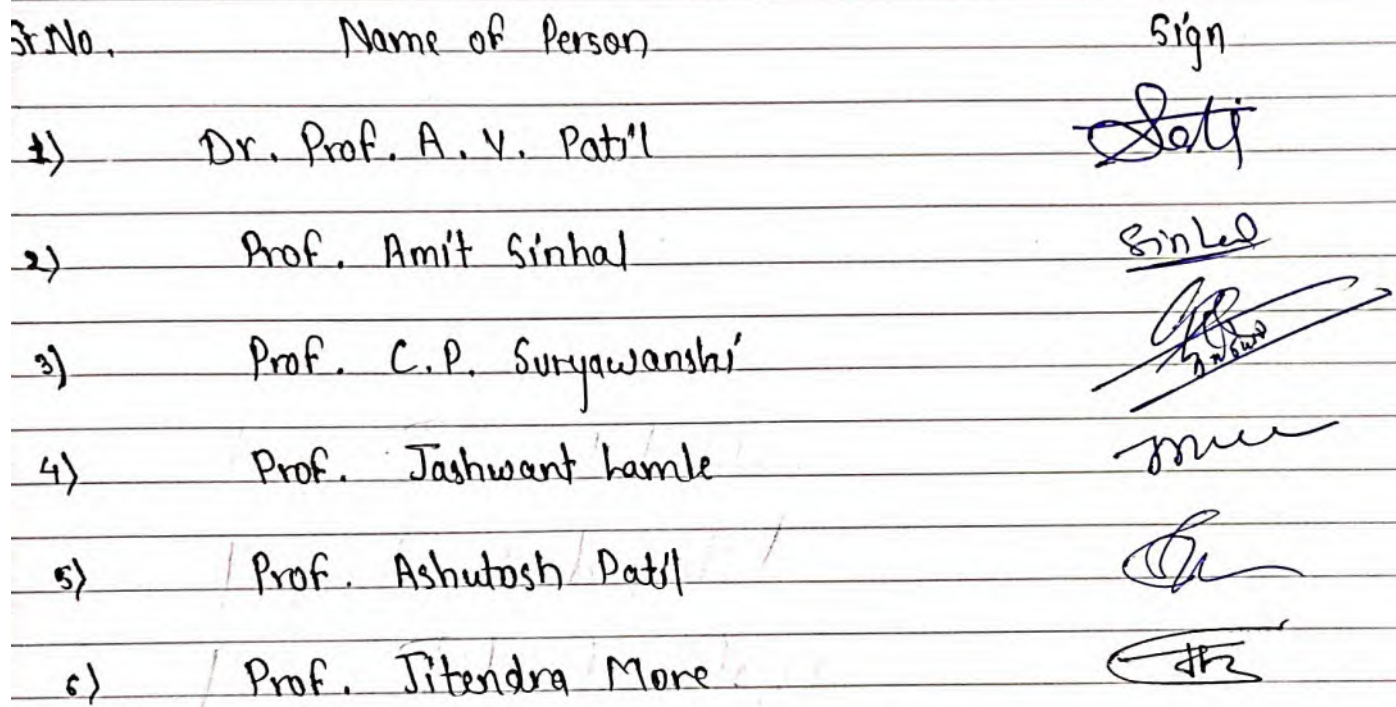 Sr.No. Name of Person Sign
1) Dr. Prof. A. Y. Patil
2) Prof. Amit Sinhal Sinhal
3) Prof. C.P. Suryawanshi
4) Prof. Jashwant Lamle
5) Prof. Ashutosh Patil
6) Prof. Jitendra More